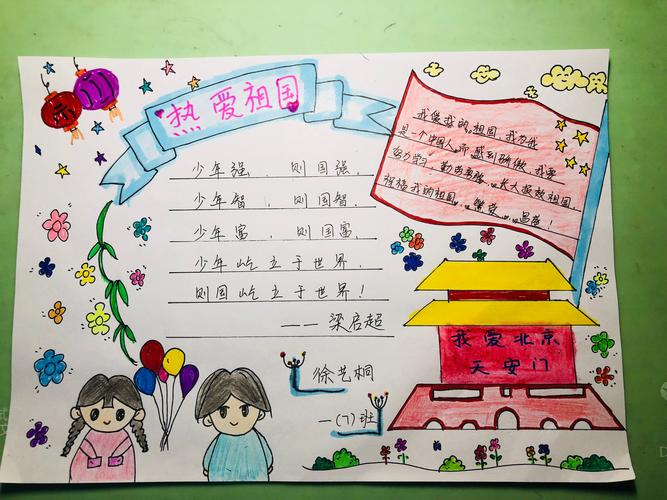 热爱祖国
少年强，则国强，
少年智，则国智，
少年富，则国富，
少年屹立于世界，
则国屹立于世界！
——梁启超
我爱我的祖国，我为我
是一个中国人而感到骄傲，我要
努力学习，勤劳勇敢，长大报效祖国，
祝福我的祖国……繁荣……昌盛！
我爱北京
天安门
徐艺桐
一(7)班